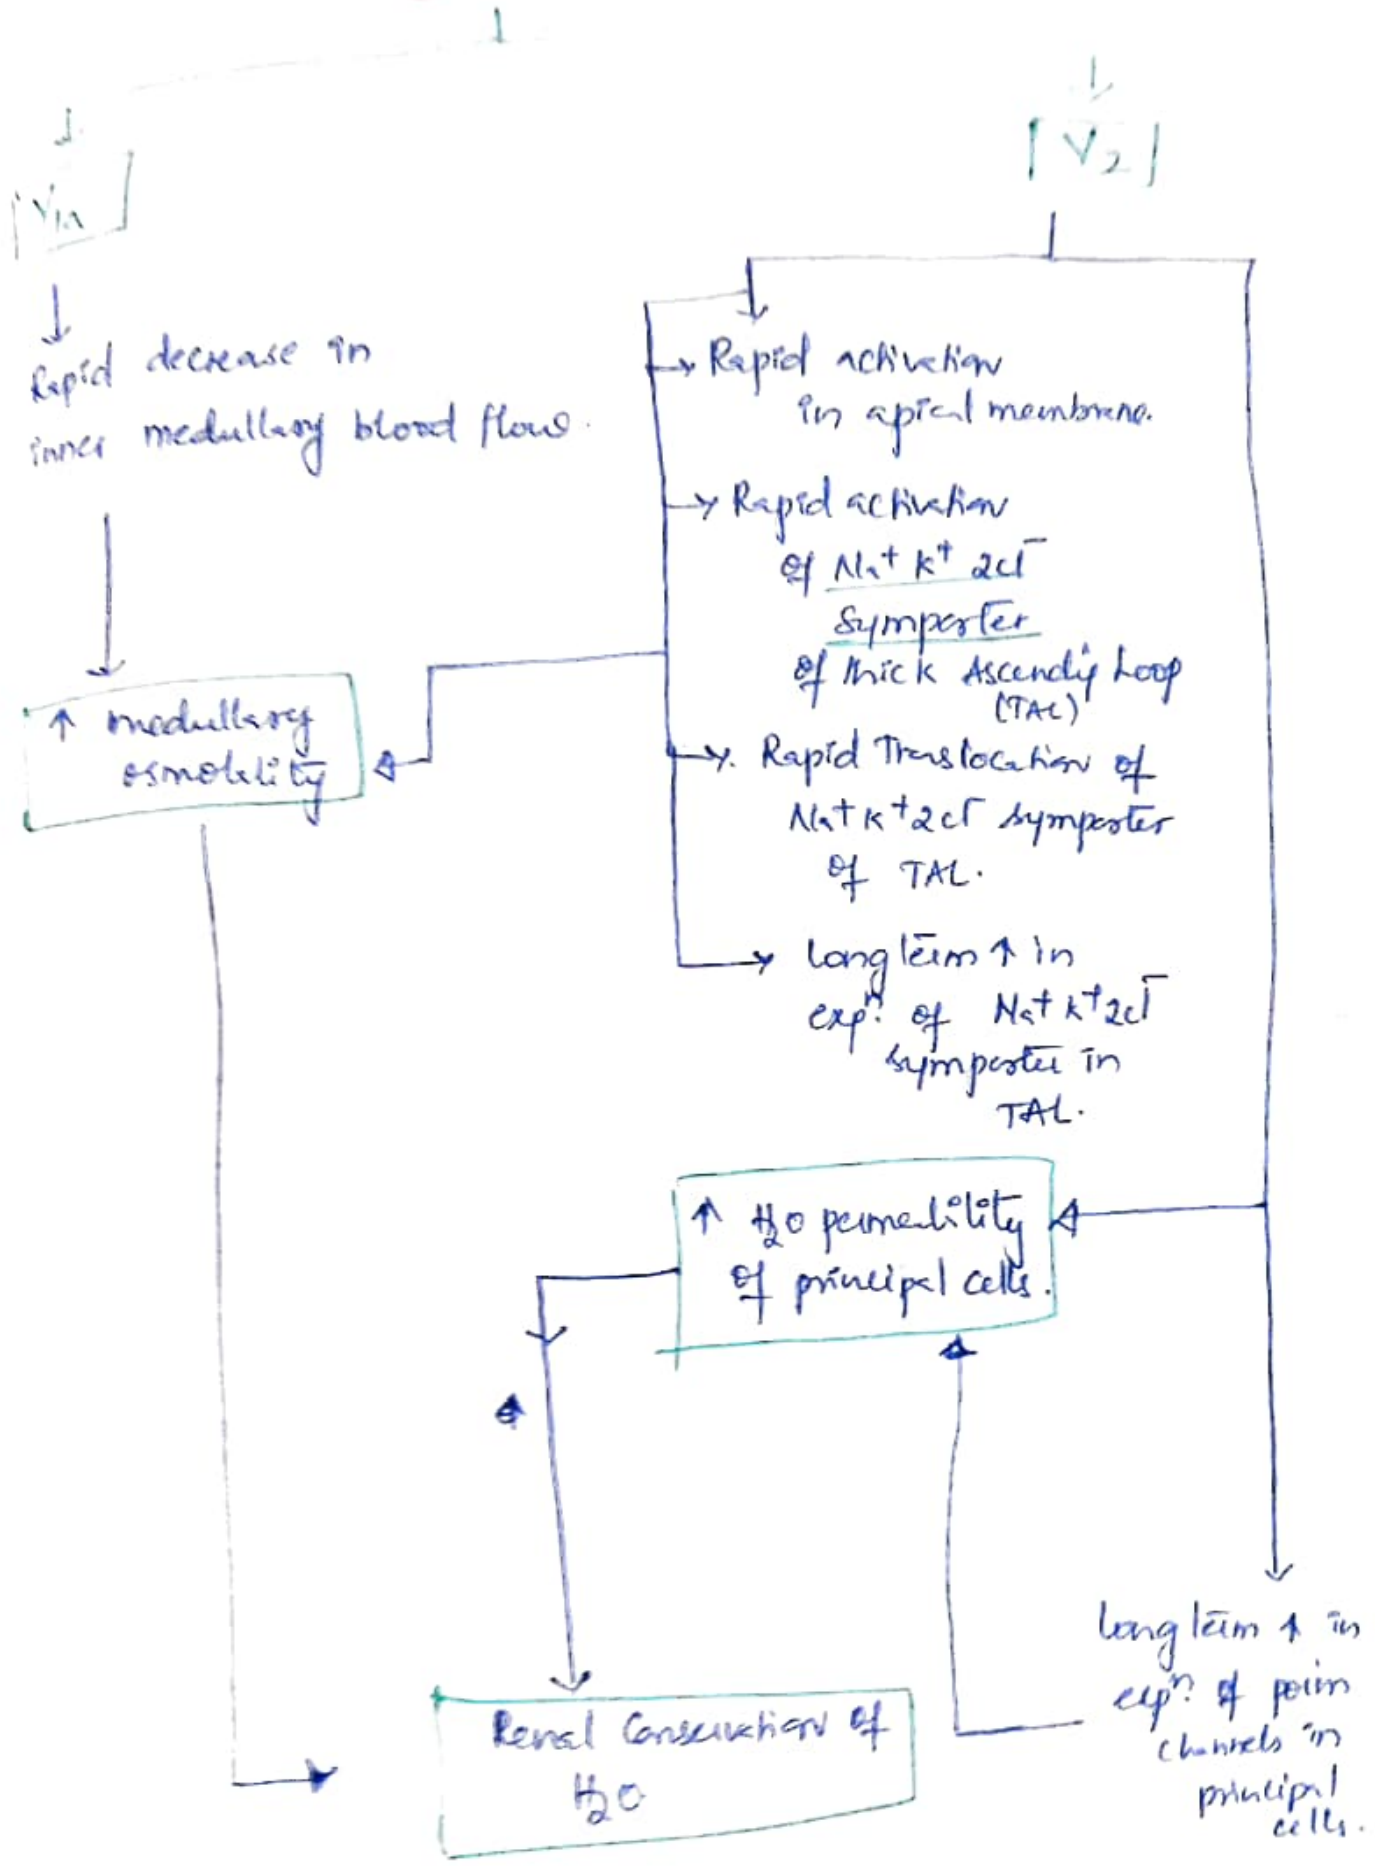 V1a
V2
Rapid decrease in
inner medullary blood flow.
Rapid activation
in apical membrane.
Rapid activation
of Na+ K+ 2Cl-
Symporter
of thick Ascendig Loop
(TAL)
↑ medullary
osmolality
Rapid Translocation of
Na+ K+ 2Cl- symporter
of TAL.
Long term ↑ in
expn. of Na+ K+ 2Cl-
symporter in
TAL.
↑ H2O permeability
of principal cells.
Long term ↑ in
expn. of porin
channels in
principal
cells.
Renal Conservation of
H2O